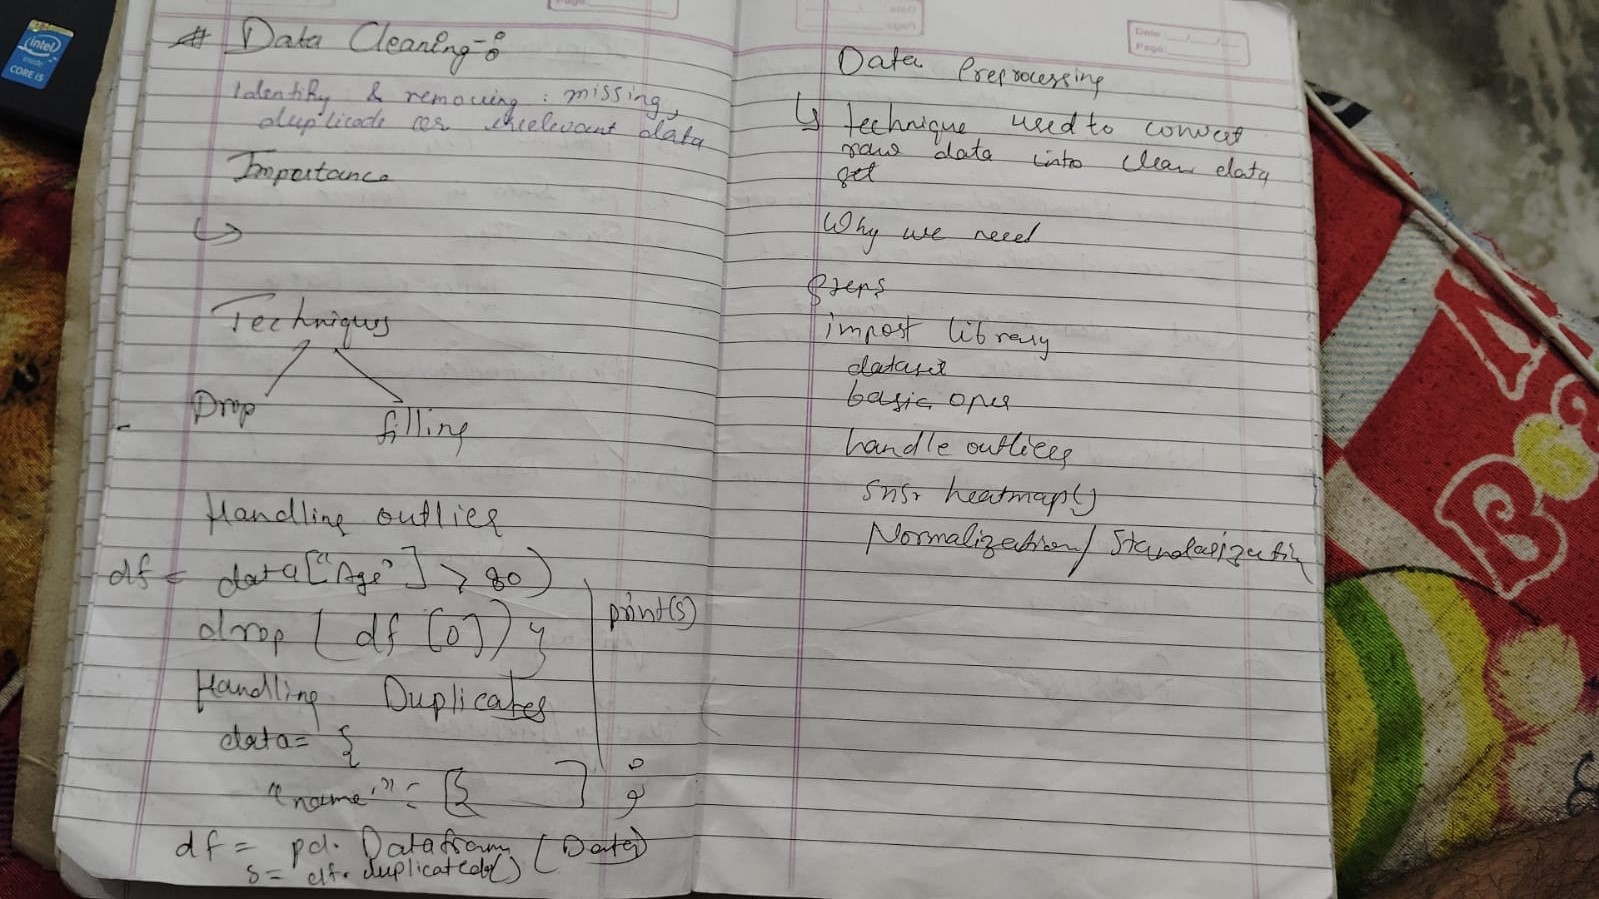 # Data Cleaning :-
Identify & removing : missing,
duplicate or irrelevant data
Importance
↳
Techniques
Drop
filling
Handling outlier
df = data["Age"] > 80)
drop ( df [0])
Handling Duplicates
data= {
"name" = [
]
df = pd. Datafram (Data)
s = df. duplicated()
print(s)
Data Preprocessing
↳ technique used to convert
raw data into clean data
set
Why we need
Steps
import library
dataset
basic oper
handle outliers
sns. heatmap()
Normalization/ Standarization
intel
inside
CORE i5
Date
Page